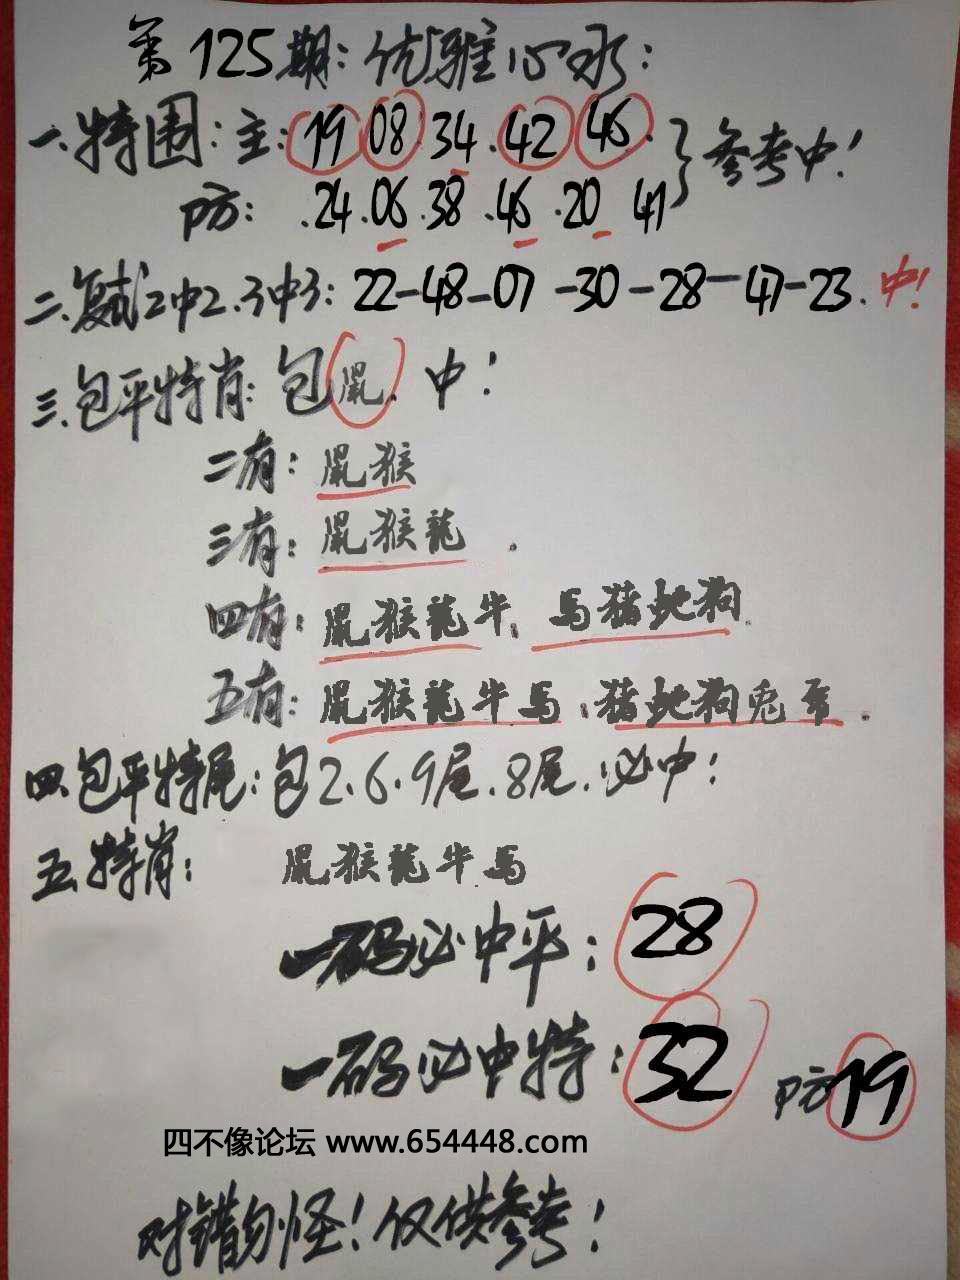 第125期:优雅心水:
一.特围:主:19 08 34.42 46.}参考中!
防:.24.06.38.46.20 41
二.复式2中2.3中3:22-48-07-30-28-47-23.中!
三.包平特肖:包鼠.中!
二有:鼠猴
三有:鼠猴龍.
四有:鼠猴龍牛.馬猪蛇狗.
五有:鼠猴龍牛馬.猪蛇狗兎羊.
四.包平特尾:包2.6.9尾.8尾.必中!
五.特肖:鼠猴龍牛馬
一码必中平:28
一码必中特:32 防19
四不像论坛 www.654448.com
对错勿怪!仅供参考!